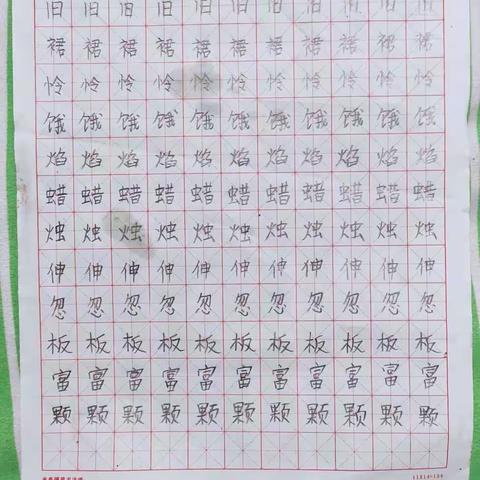 旧 旧 旧 旧 旧 旧 旧 旧 旧 旧 旧
裙 裙 裙 裙 裙 裙 裙 裙 裙 裙 裙
怜 怜 怜 怜 怜 怜 怜 怜 怜 怜 怜
饿 饿 饿 饿 饿 饿 饿 饿 饿 饿 饿
焰 焰 焰 焰 焰 焰 焰 焰 焰 焰 焰
蜡 蜡 蜡 蜡 蜡 蜡 蜡 蜡 蜡 蜡 蜡
烛 烛 烛 烛 烛 烛 烛 烛 烛 烛 烛
伸 伸 伸 伸 伸 伸 伸 伸 伸 伸 伸
忽 忽 忽 忽 忽 忽 忽 忽 忽 忽 忽
板 板 板 板 板 板 板 板 板 板 板
富 富 富 富 富 富 富 富 富 富 富
颗 颗 颗 颗 颗 颗 颗 颗 颗 颗 颗